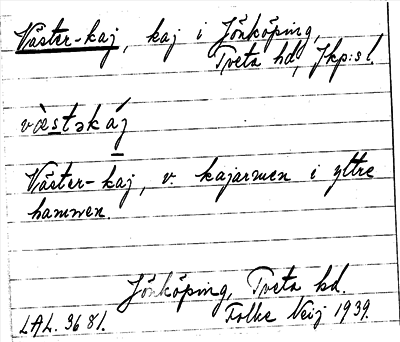 Väster-kaj, kaj i Jönköping,
Tveta hd, Jkp:s l.
væ̀stəkáj
Väster-kaj, v. kajarmen i yttre
hamnen.
Jönköping, Tveta hd.
LAL. 3681. Folke Neij 1939.